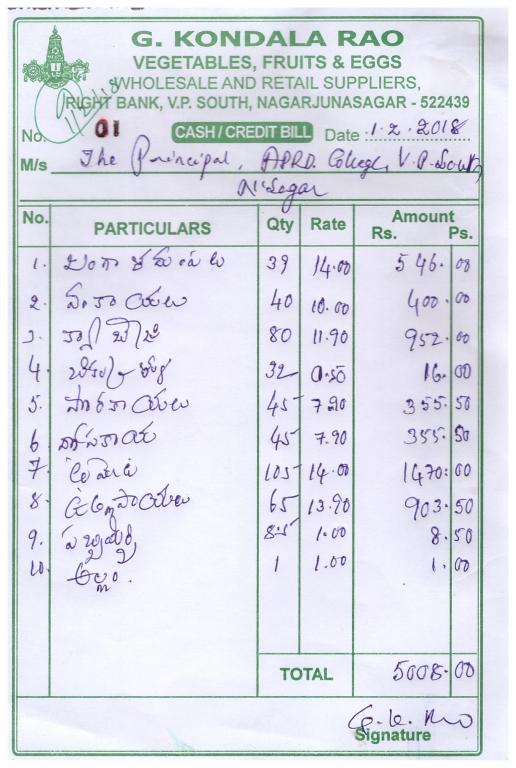 G. KONDALA RAO
VEGETABLES, FRUITS & EGGS
WHOLESALE AND RETAIL SUPPLIERS,
RIGHT BANK, V.P. SOUTH, NAGARJUNASAGAR - 522439
No. 01 CASH / CREDIT BILL Date 1.2.2018
M/s The Principal, APRD. College, V.P. South,
N'Sagar
No. PARTICULARS Qty Rate Amount Rs. Ps.
1. బంగాళదుంపలు 39 14.00 546.00
2. వంకాయలు 40 10.00 400.00
3. 80 11.90 952.00
4. 32 0.50 16.00
5. సొరకాయలు 45 7.90 355.50
6. దోసకాయ 45 7.90 355.50
7. టమోట 105 14.00 1470.00
8. ఉల్లిపాయలు 65 13.90 903.50
9. పచ్చిమిర్చి 8.5 1.00 8.50
10. అల్లం. 1 1.00 1.00
TOTAL 5008.00
G.K. Rao
Signature